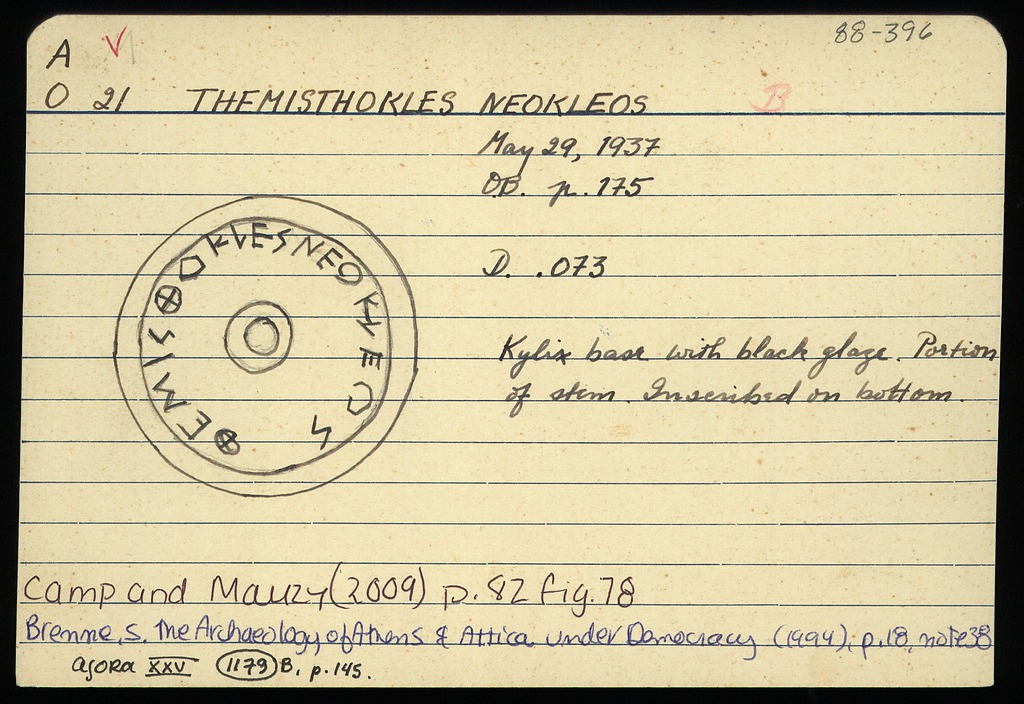 A V 88-396
O 21 THEMISTHOKLES NEOKLEOS B
May 29, 1937
OB. p. 175
D. .073
⊗EMIS⊗OKLES NEOKLEOS
Kylix base with black glaze. Portion
of stem. Inscribed on bottom.
Camp and Mauzy (2009) p. 82 fig. 78
Brenne, S. The Archaeology of Athens & Attica under Democracy (1994), p. 18, note 38
Agora XXV 1179 B, p. 145.